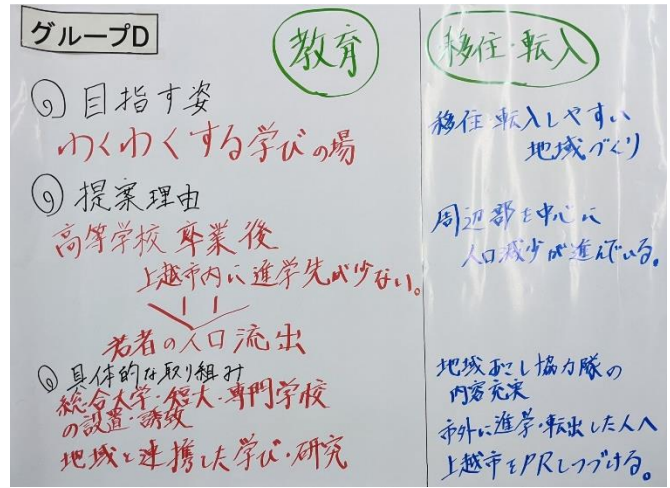 グループD
教育
◎目指す姿
わくわくする学びの場
◎提案理由
高等学校卒業後
上越市内に進学先が少ない。
若者の人口流出
◎具体的な取り組み
総合大学・短大・専門学校
の設置・誘致
地域と連携した学び・研究
移住・転入
移住・転入しやすい
地域づくり
周辺部を中心に
人口減少が進んでいる。
地域おこし協力隊の
内容充実
市外に進学・転出した人へ
上越市をPRしつづける。